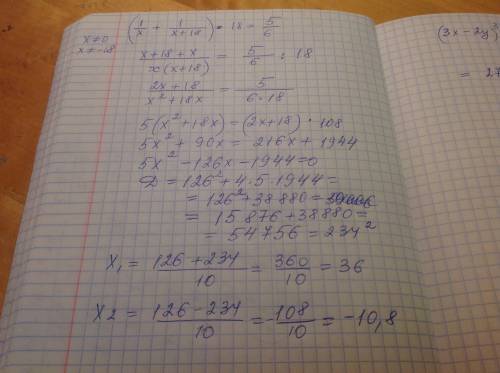 x≠0 (1/x + 1/(x+18)) · 18 = 5/6
x≠-18
(x+18+x)/(x(x+18)) = 5/6 : 18
(2x+18)/(x²+18x) = 5/(6·18)
5(x²+18x) = (2x+18)·108
5x²+90x = 216x+1944
5x²-126x-1944=0
D = 126²+4·5·1944=
= 126²+38880=
= 15876+38880=
= 54756=234²
X₁ = (126+234)/10 = 360/10 = 36
X2 = (126-234)/10 = -108/10 = -10,8
(3x-2y
= 27